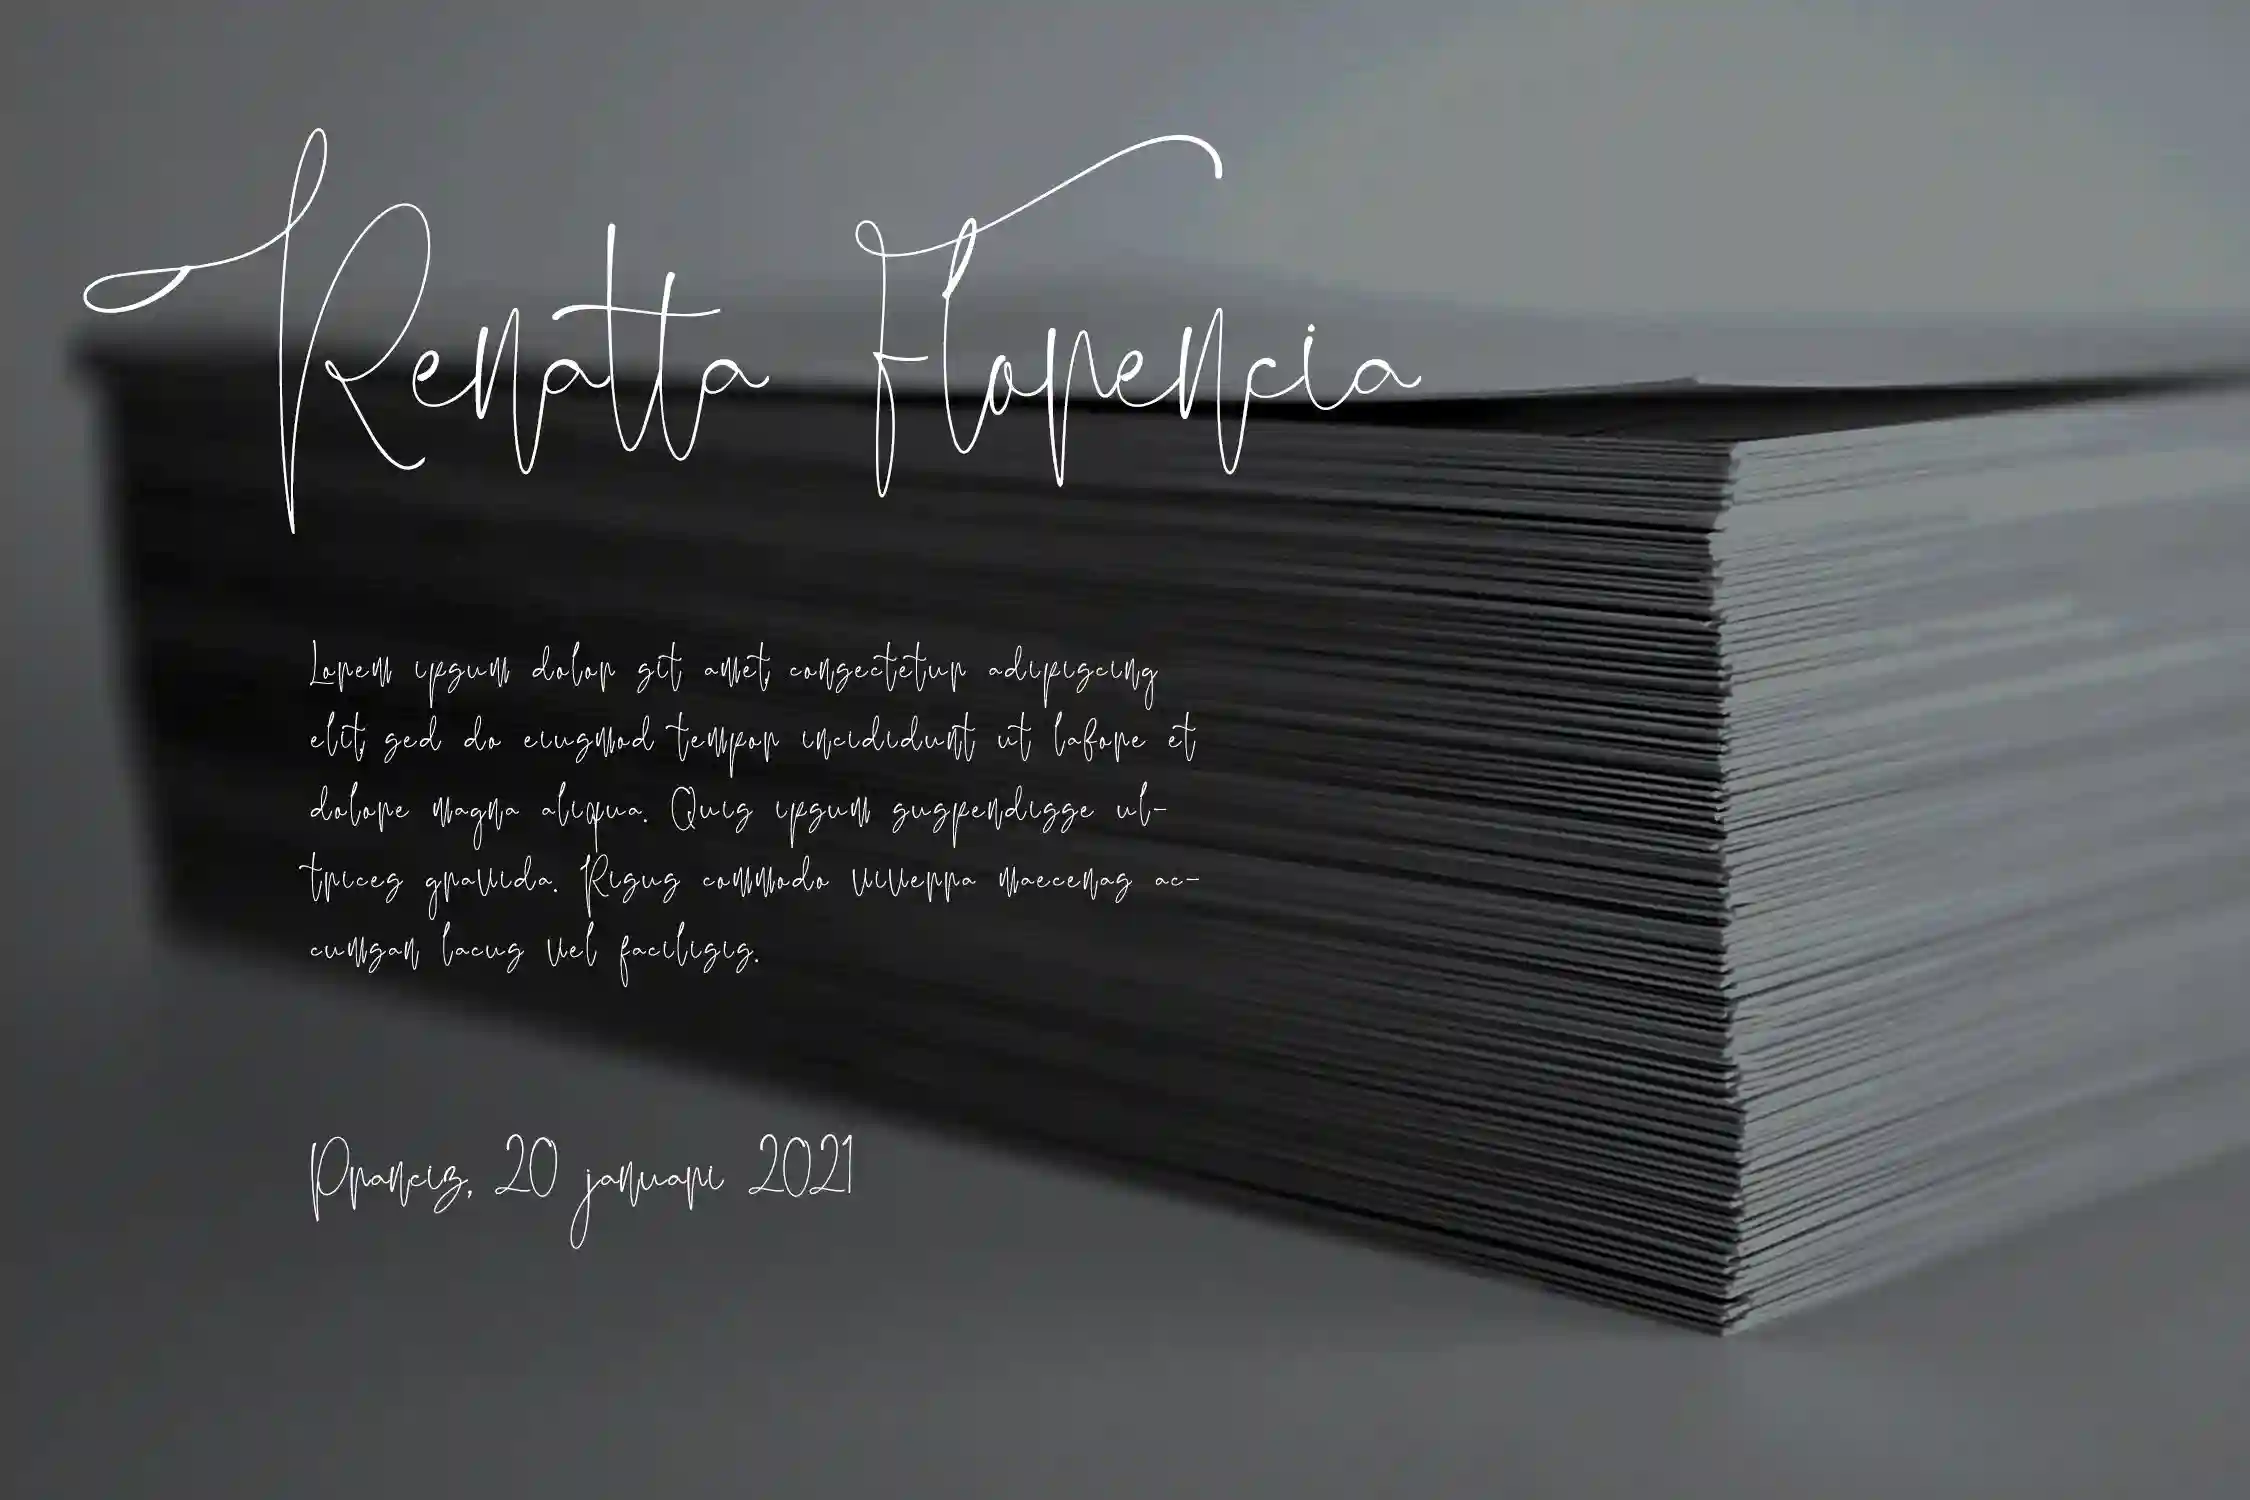 Renatta Florencia
Lorem ipsum dolor sit amet, consectetur adipiscing
elit, sed do eiusmod tempor incididunt ut labore et
dolore magna aliqua. Quis ipsum suspendisse ul-
trices gravida. Risus commodo viverra maecenas ac-
cumsan lacus vel facilisis.
Pranciz, 20 januari 2021